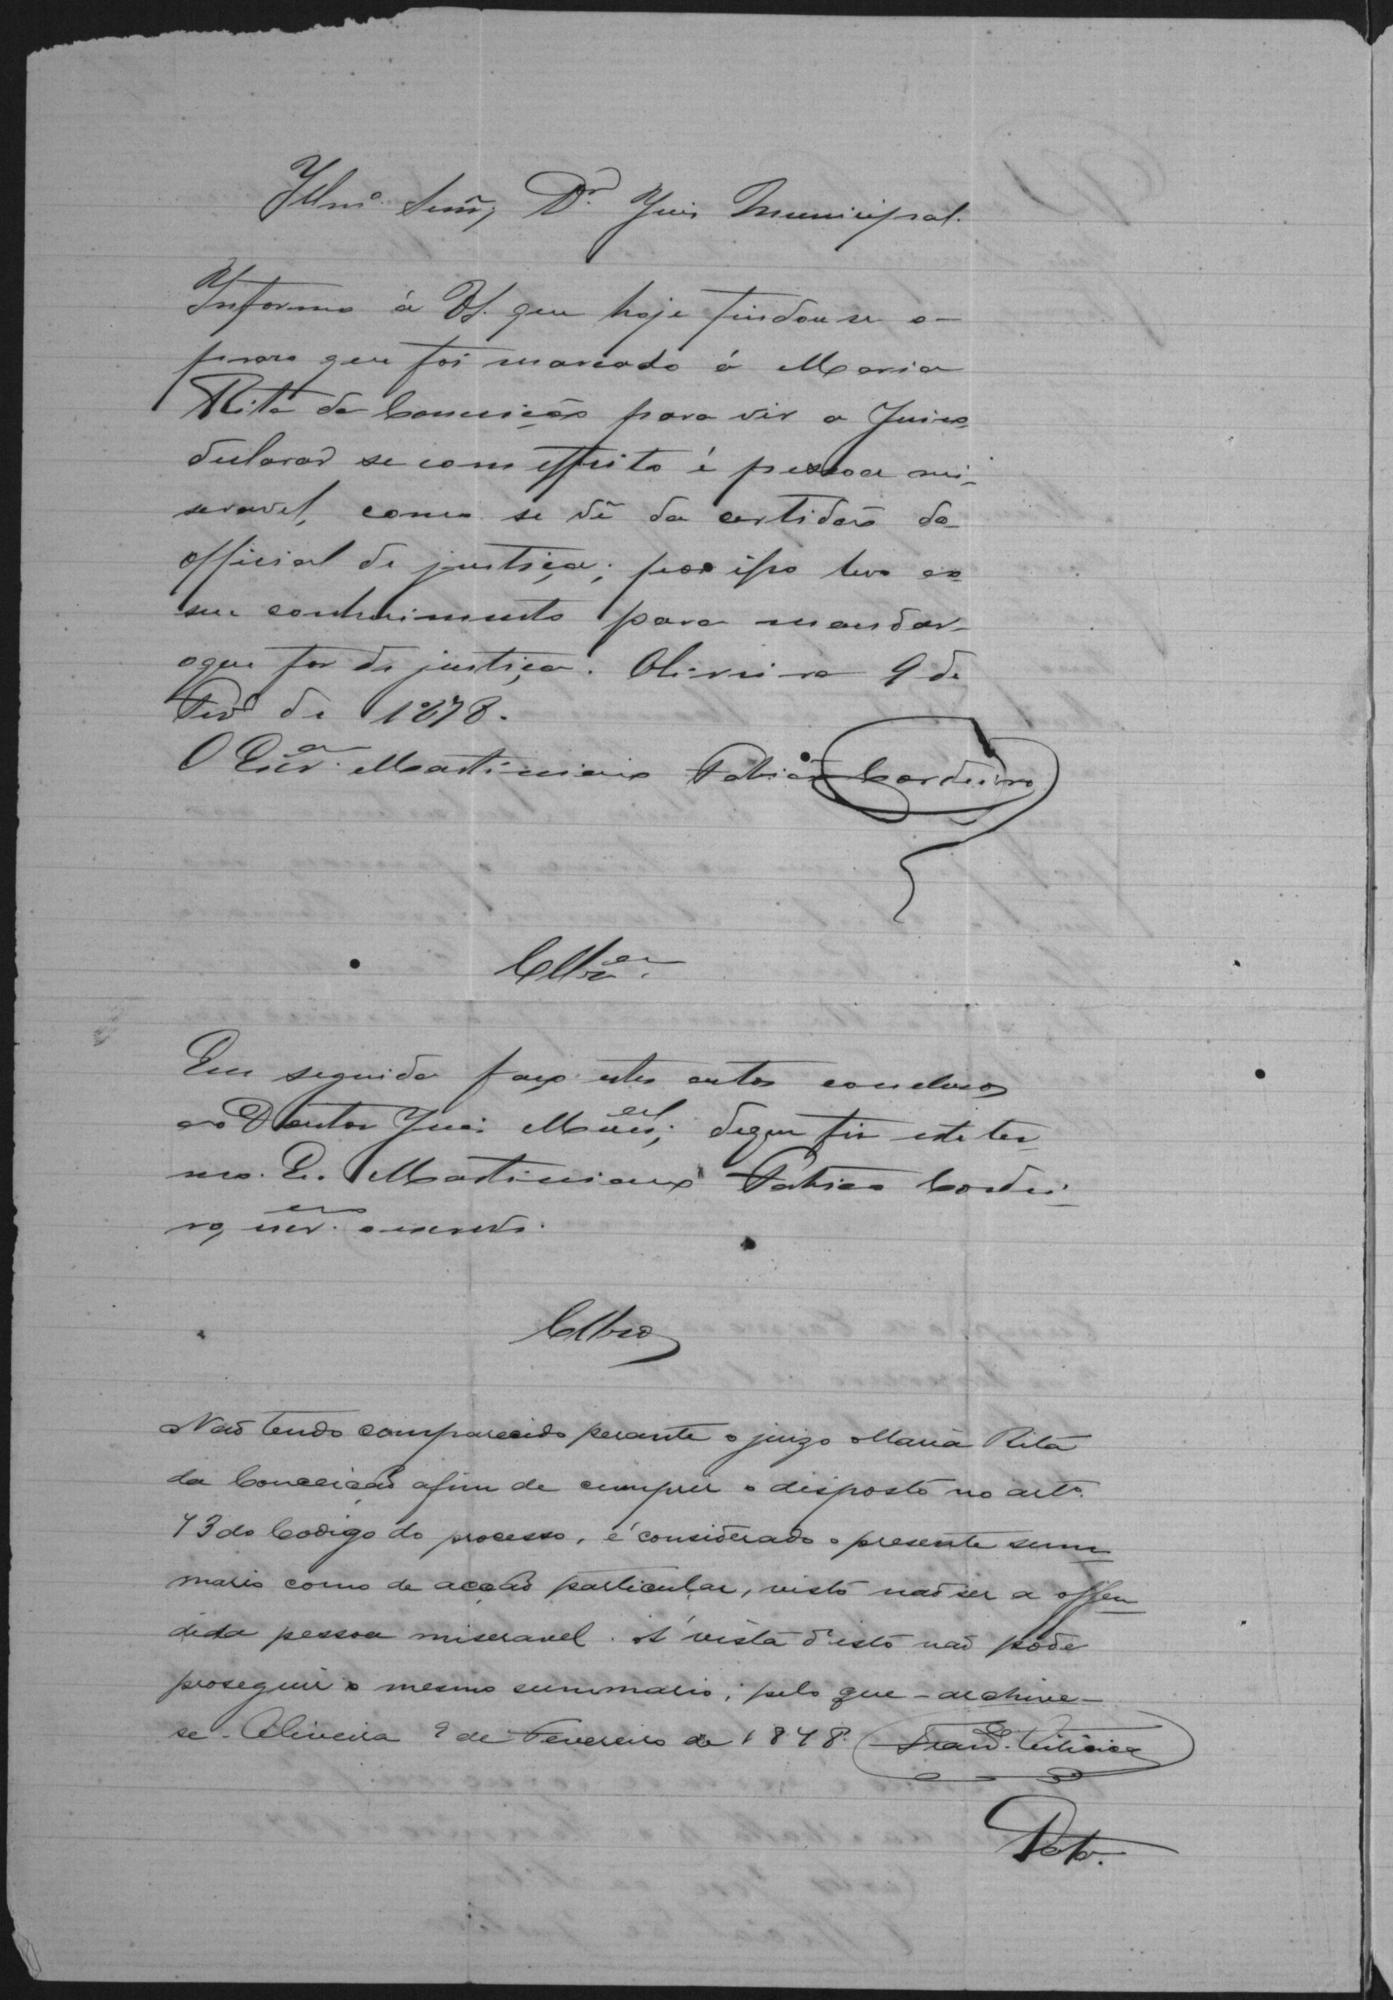 Illmo. Senr, Dr. Juis Municipal.
Informo á VS. que hoje findou se o
praso que foi marcado á Maria
Rita da Conceição para vir a Juiso
declarar se com effeito é pessoa mi-
seravel, como se vê da certidão do
official de justiça; por isso levo ao
seu conhecimento para mandar
oque for de justiça. Oliveira 9 de
Fevo de 1878.
O Escram. Martiniano Fabião Cordeiro
Cllsam.
Em seguida faço estes autos conclusos
ao Doutor Juis Mual; deque fiz este ter-
mo. Eu Martiniano Fabião Cordei-
ro, escram. o escrevi.
Cllsos
Não tendo comparecido perante o juizo Maria Rita
da Conceição afim de cumprir o disposto no arto.
73 do Codigo do processo, é considerado o presente sum-
mario como de acção particular, visto não ser a offen-
dida pessoa miseravel. Á vista d'isto não pode
proseguir o mesmo summario; pelo que - archive-
se. Oliveira 9 de Fevereiro de 1878.
Data.